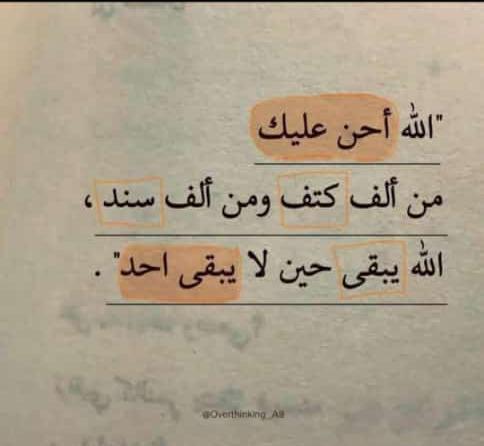 "الله أحن عليك
من ألف كتف ومن ألف سند ،
الله يبقى حين لا يبقى احد" .
@Overthinking_A8